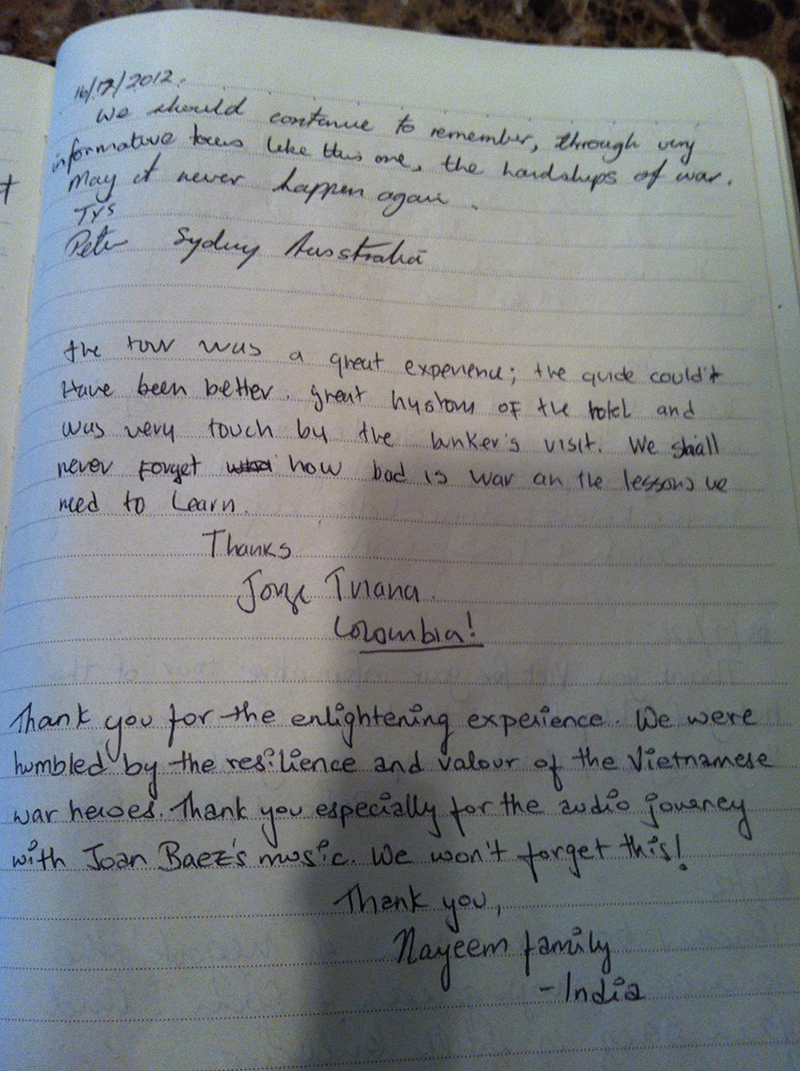 16/7/2012.
We should continue to remember, through very
informative tours like this one, the hardships of war.
May it never happen again.
TYS
Peter Sydney Australia
the tour was a great experience; the guide couldn't
Have been better. great hystory of the hotel and
was very touch by the bunker's visit. We shall
never forget how bad is war an the lessons we
need to Learn.
Thanks
Jorge Triana.
Colombia!
Thank you for the enlightening experience. We were
humbled by the resilience and valour of the Vietnamese
war heroes. Thank you especially for the audio jouney
with Joan Baez's music. We won't forget this!
Thank you,
Nayeem family
-India